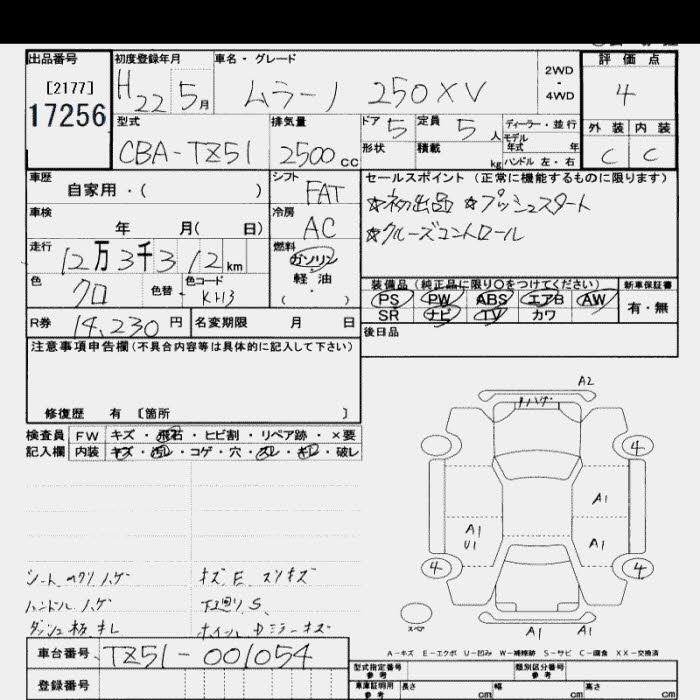 出品番号 初度登録年月 車名・グレード 評価点
[2177] H22 5月 ムラーノ 250XV 2WD・4WD 4
17256
型式 排気量 ドア 5 定員 5人 ディーラー・並行 外装 内装
モデル年式 年
CBA-TZ51 2500cc 形状 積載 kg ハンドル 左・右 C C
車歴 シフト セールスポイント (正常に機能するものに限ります)
自家用・( ) FAT ☆初出品 ☆プッシュスタート
車検 冷房 ☆クルーズコントロール
年 月( 日) AC
走行 燃料
12万3千312km ガソリン
色 色替 色コード 軽油 装備品(純正品に限り○をつけてください) 新車保証書
クロ KH3 ( ) PS PW ABS エアB AW 有・無
SR ナビ TV カワ
R券 14,230円 名変期限 月 日 後日品
注意事項申告欄(不具合内容等は具体的に記入して下さい)
修復歴 有 [箇所 ]
検査員 FW キズ・飛石・ヒビ割・リペア跡・×要
記入欄 内装 キズ・汚レ・コゲ・穴・スレ・キレ・破レ
A2
4
A1
A1 U1 A1
4 4
シート ハゲ キズE スリキズ
ハンドル ハゲ 下廻りS
スペア A1 A1
A-キズ E-エクボ U-凹み W-補修跡 S-サビ C-腐食 XX-交換済
車台番号 TZ51-001054
型式指定番号 参考 類別区分番号 参考
登録番号 車庫証明用 参考 長さ cm 幅 cm 高さ cm